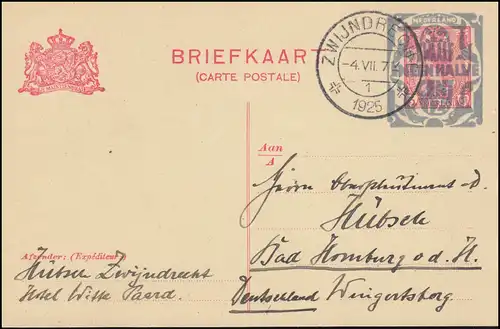 BRIEFKAART
(CARTE POSTALE)
ZWIJNDRECHT
-4.VII.7
1
1925
NEDERLAND
EEN HALVE
Aan
A
Herrn Oberstleutnant a.D.
Hübsch
Bad Homburg v.d.H.
Deutschland Wingertsberg
Afzender: (Expéditeur)
Hübsch Zwijndrecht
Hotel Witte Paard.